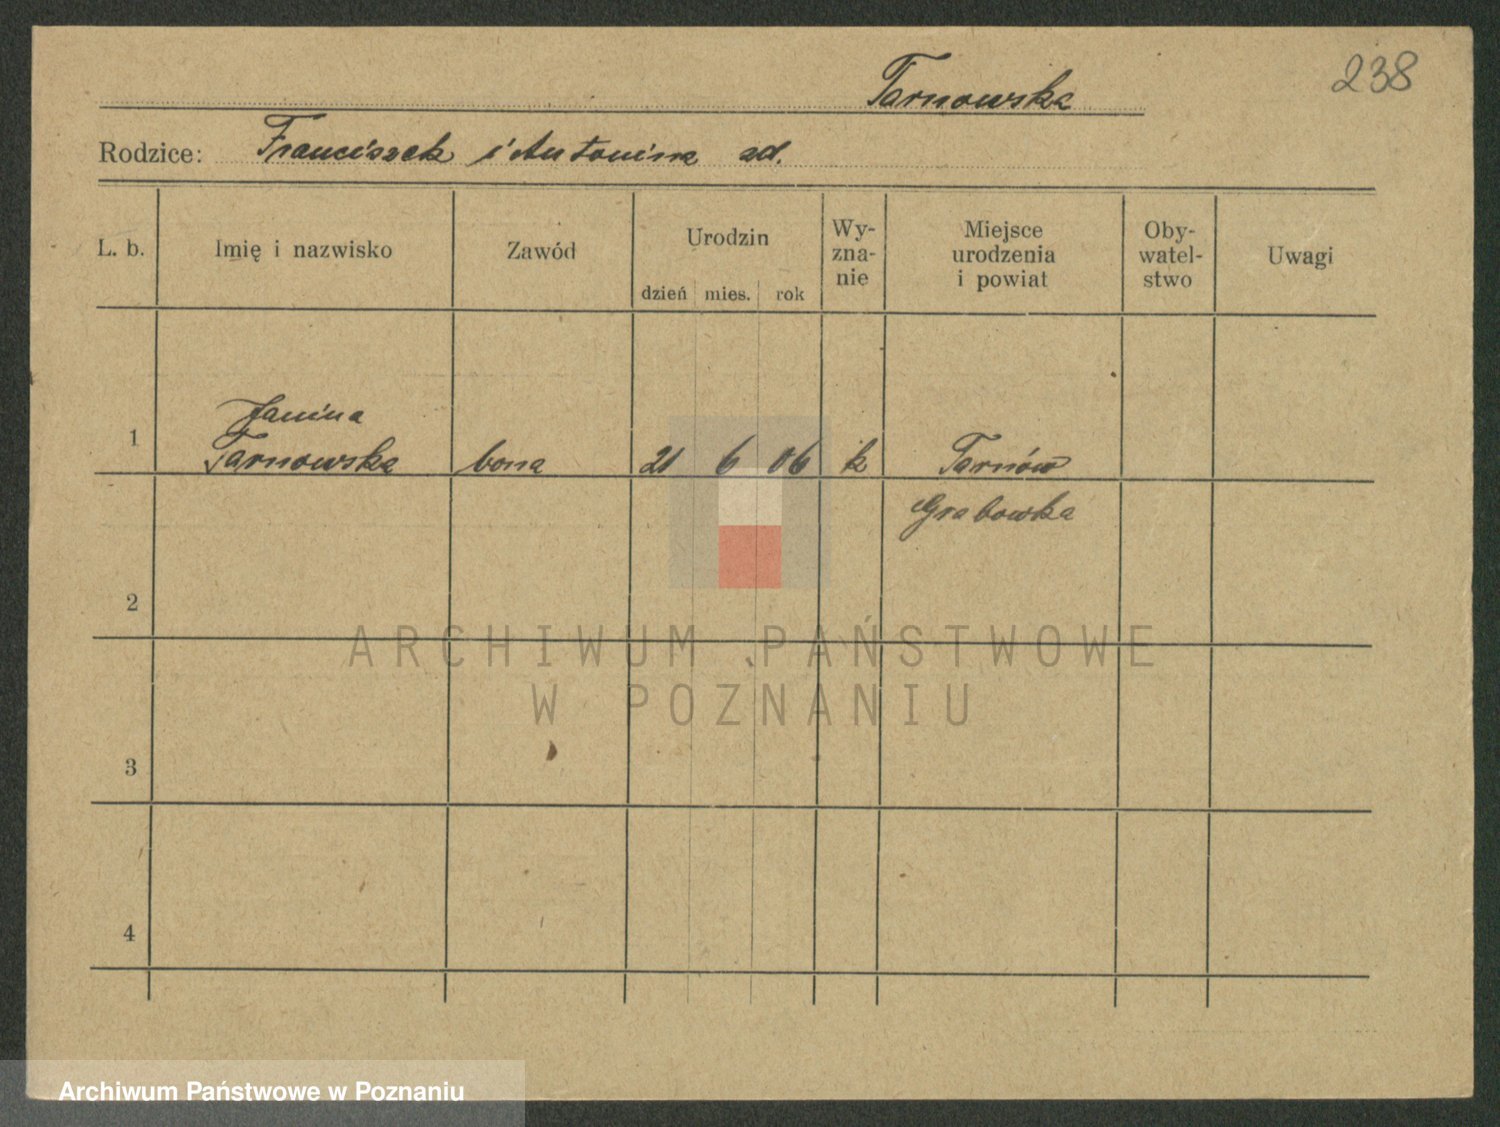 238
Tarnowska
Rodzice: Franciszek i Antonina zd.
L. b.
Imię i nazwisko
Zawód
Urodzin
dzień mies. rok
Wy-
zna-
nie
Miejsce
urodzenia
i powiat
Oby-
watel-
stwo
Uwagi
Janina
1 Tarnowska bona 21 6 06 k Tarnów
Grabowska
2
3
4
ARCHIWUM PAŃSTWOWE
W POZNANIU
Archiwum Państwowe w Poznaniu